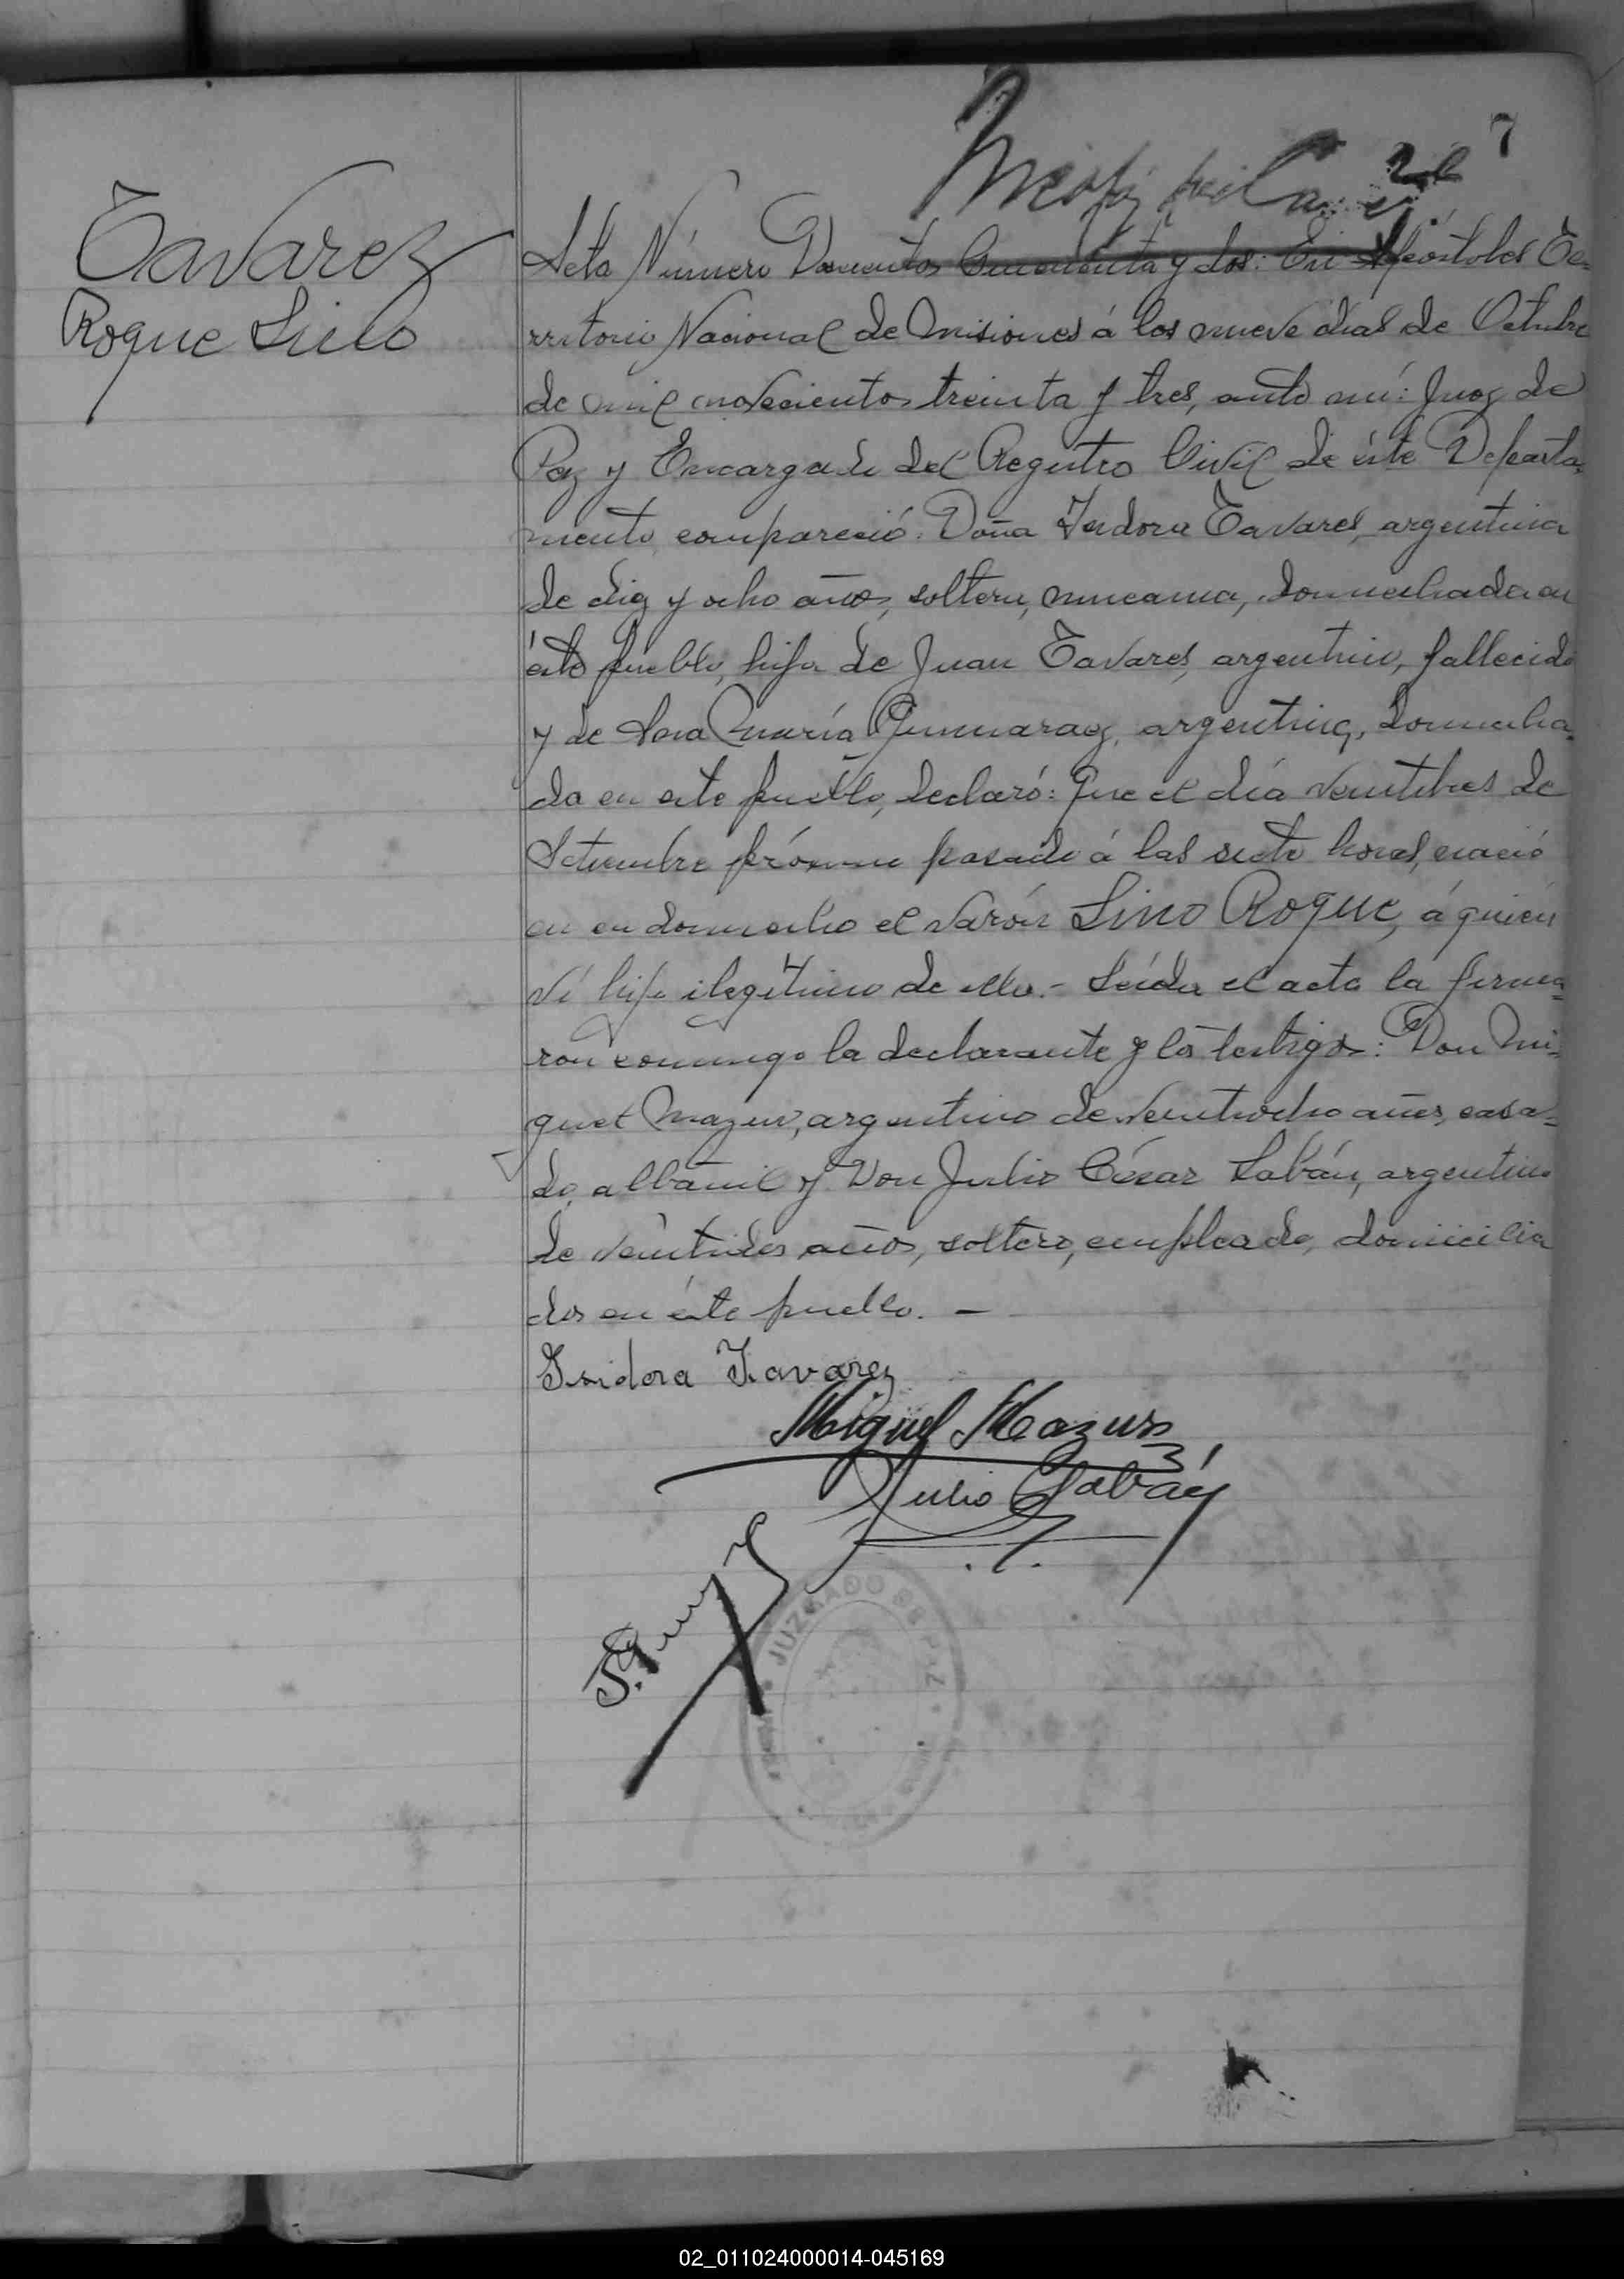 7
Tavarez
Roque Lino
Acta Número Doscientos Cincuenta y dos: En Apóstoles Te=
rritorio Nacional de Misiones á los nueve dias de Octubre
de mil novecientos treinta y tres, ante mí: Juez de
Paz y Encargado del Registro Civil de éste Departa=
mento, compareció: Doña Isidora Tavares, argentina
de diez y ocho años, soltera, domiciliada en
éste pueblo, hija de Juan Tavares, argentino, fallecido
y de María argentina, domicilia=
da en este pueblo, declaró: Que el día veintitres de
Setiembre próximo pasado á las siete horas, nació
en su domicilio el varón Lino Roque, á quién
ví hijo ilegítimo de ella.- Leída el acta la firma=
ron conmigo la declarante y los testigos: Don Mi=
guel Mazur, argentino de veintiocho años, casa=
do, albañil y Don Julio César Labán, argentino
de veintidos años, soltero, empleado, domicilia
dos en éste pueblo. —
Isidora Tavarez
Miguel Mazur
Julio C Labán
JUZGADO DE PAZ
02_011024000014-045169